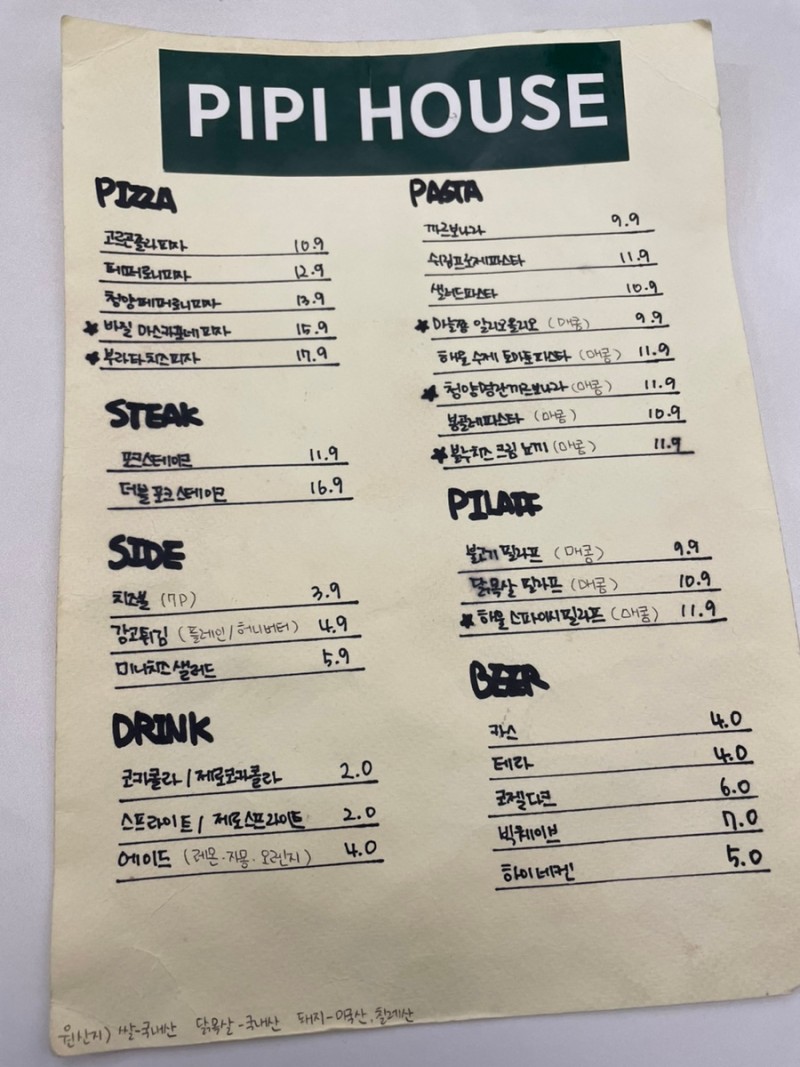 PIPI HOUSE
PIZZA
고르곤졸라피자 10.9
페퍼로니피자 12.9
청양페퍼로니피자 13.9
★ 바질 마스카포네피자 15.9
★ 부라타치즈피자 17.9
STEAK
포크스테이크 11.9
더블포크스테이크 16.9
SIDE
치즈볼 (7P) 3.9
감자튀김 (플레인/허니버터) 4.9
미니치즈샐러드 5.9
DRINK
코카콜라/제로코카콜라 2.0
스프라이트/제로스프라이트 2.0
에이드 (레몬·자몽·오렌지) 4.0
PASTA
까르보나라 9.9
쉬림프로제파스타 11.9
샐러드파스타 10.9
★ 마늘쫑 알리오올리오 (매콤) 9.9
해물 수제 토마토파스타 (매콤) 11.9
★ 청양명란까르보나라 (매콤) 11.9
봉골레파스타 (매콤) 10.9
★ 블루치즈 크림 뇨끼 (매콤) 11.9
PILAFF
불고기 필라프 (매콤) 9.9
닭목살 필라프 (매콤) 10.9
★ 해물 스파이시필라프 (매콤) 11.9
BEER
카스 4.0
테라 4.0
코젤다크 6.0
빅웨이브 7.0
하이네켄 5.0
원산지) 쌀-국내산 닭목살-국내산 돼지-미국산, 칠레산